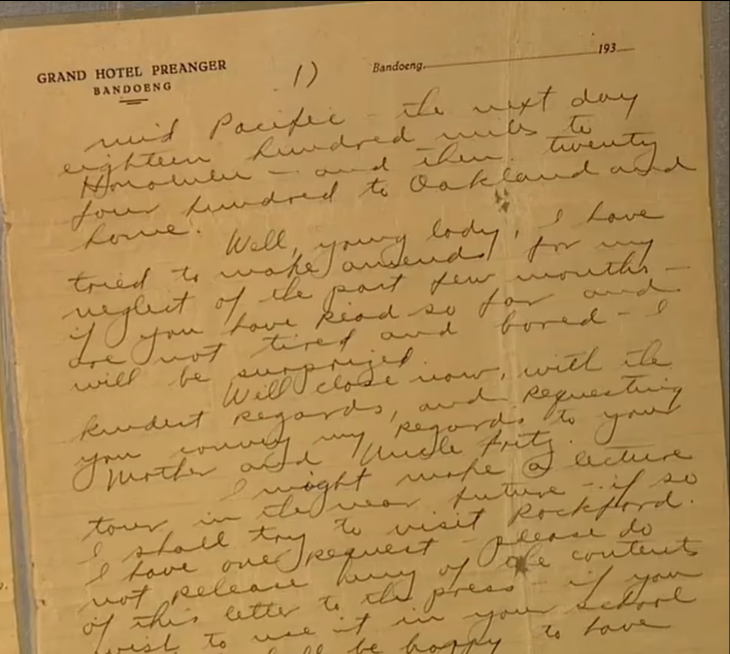 GRAND HOTEL PREANGER
BANDOENG
1)
Bandoeng, 193
mid Pacific - the next day
eighteen hundred miles to
Honolulu - and then twenty
four hundred to Oakland and
home.
Well, young lady, I have
tried to make amends for my
neglect of the past few months -
if you have read so far and
are not tired and bored - I
will be surprized.
Will close now, with the
kindest regards, and requesting
you convey my regards to your
Mother and Uncle Fritz.
I might make a lecture
tour in the near future - if so
I shall try to visit Rockford.
I have one request - please do
not release any of the contents
of this letter to the press - if you
wish to use it in your school
be happy to have